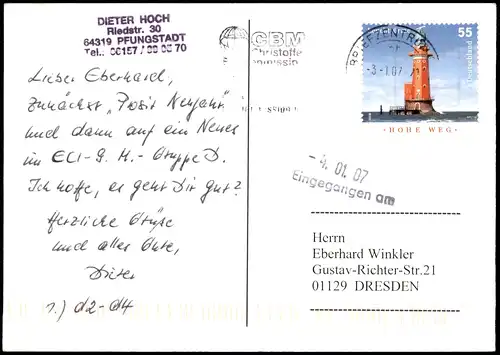 DIETER HOCH
Riedstr. 30
64319 PFUNGSTADT
Tel.: 06157 / 70
CBM
Christoffel
BRIEFZENTRUM
-3.-1.07
55
Deutschland
· HOHE WEG ·
- 4. 01. 07
Eingegangen am
Lieber Eberhard,
zunächst "Prosit Neujahr"
und dann auf ein Neues
im ECI-G. M.-Gruppe D.
Ich hoffe, es geht Dir gut?
Herzliche Grüße
und alles Gute,
Dieter
1.) d2-d4
Herrn
Eberhard Winkler
Gustav-Richter-Str.21
01129 DRESDEN